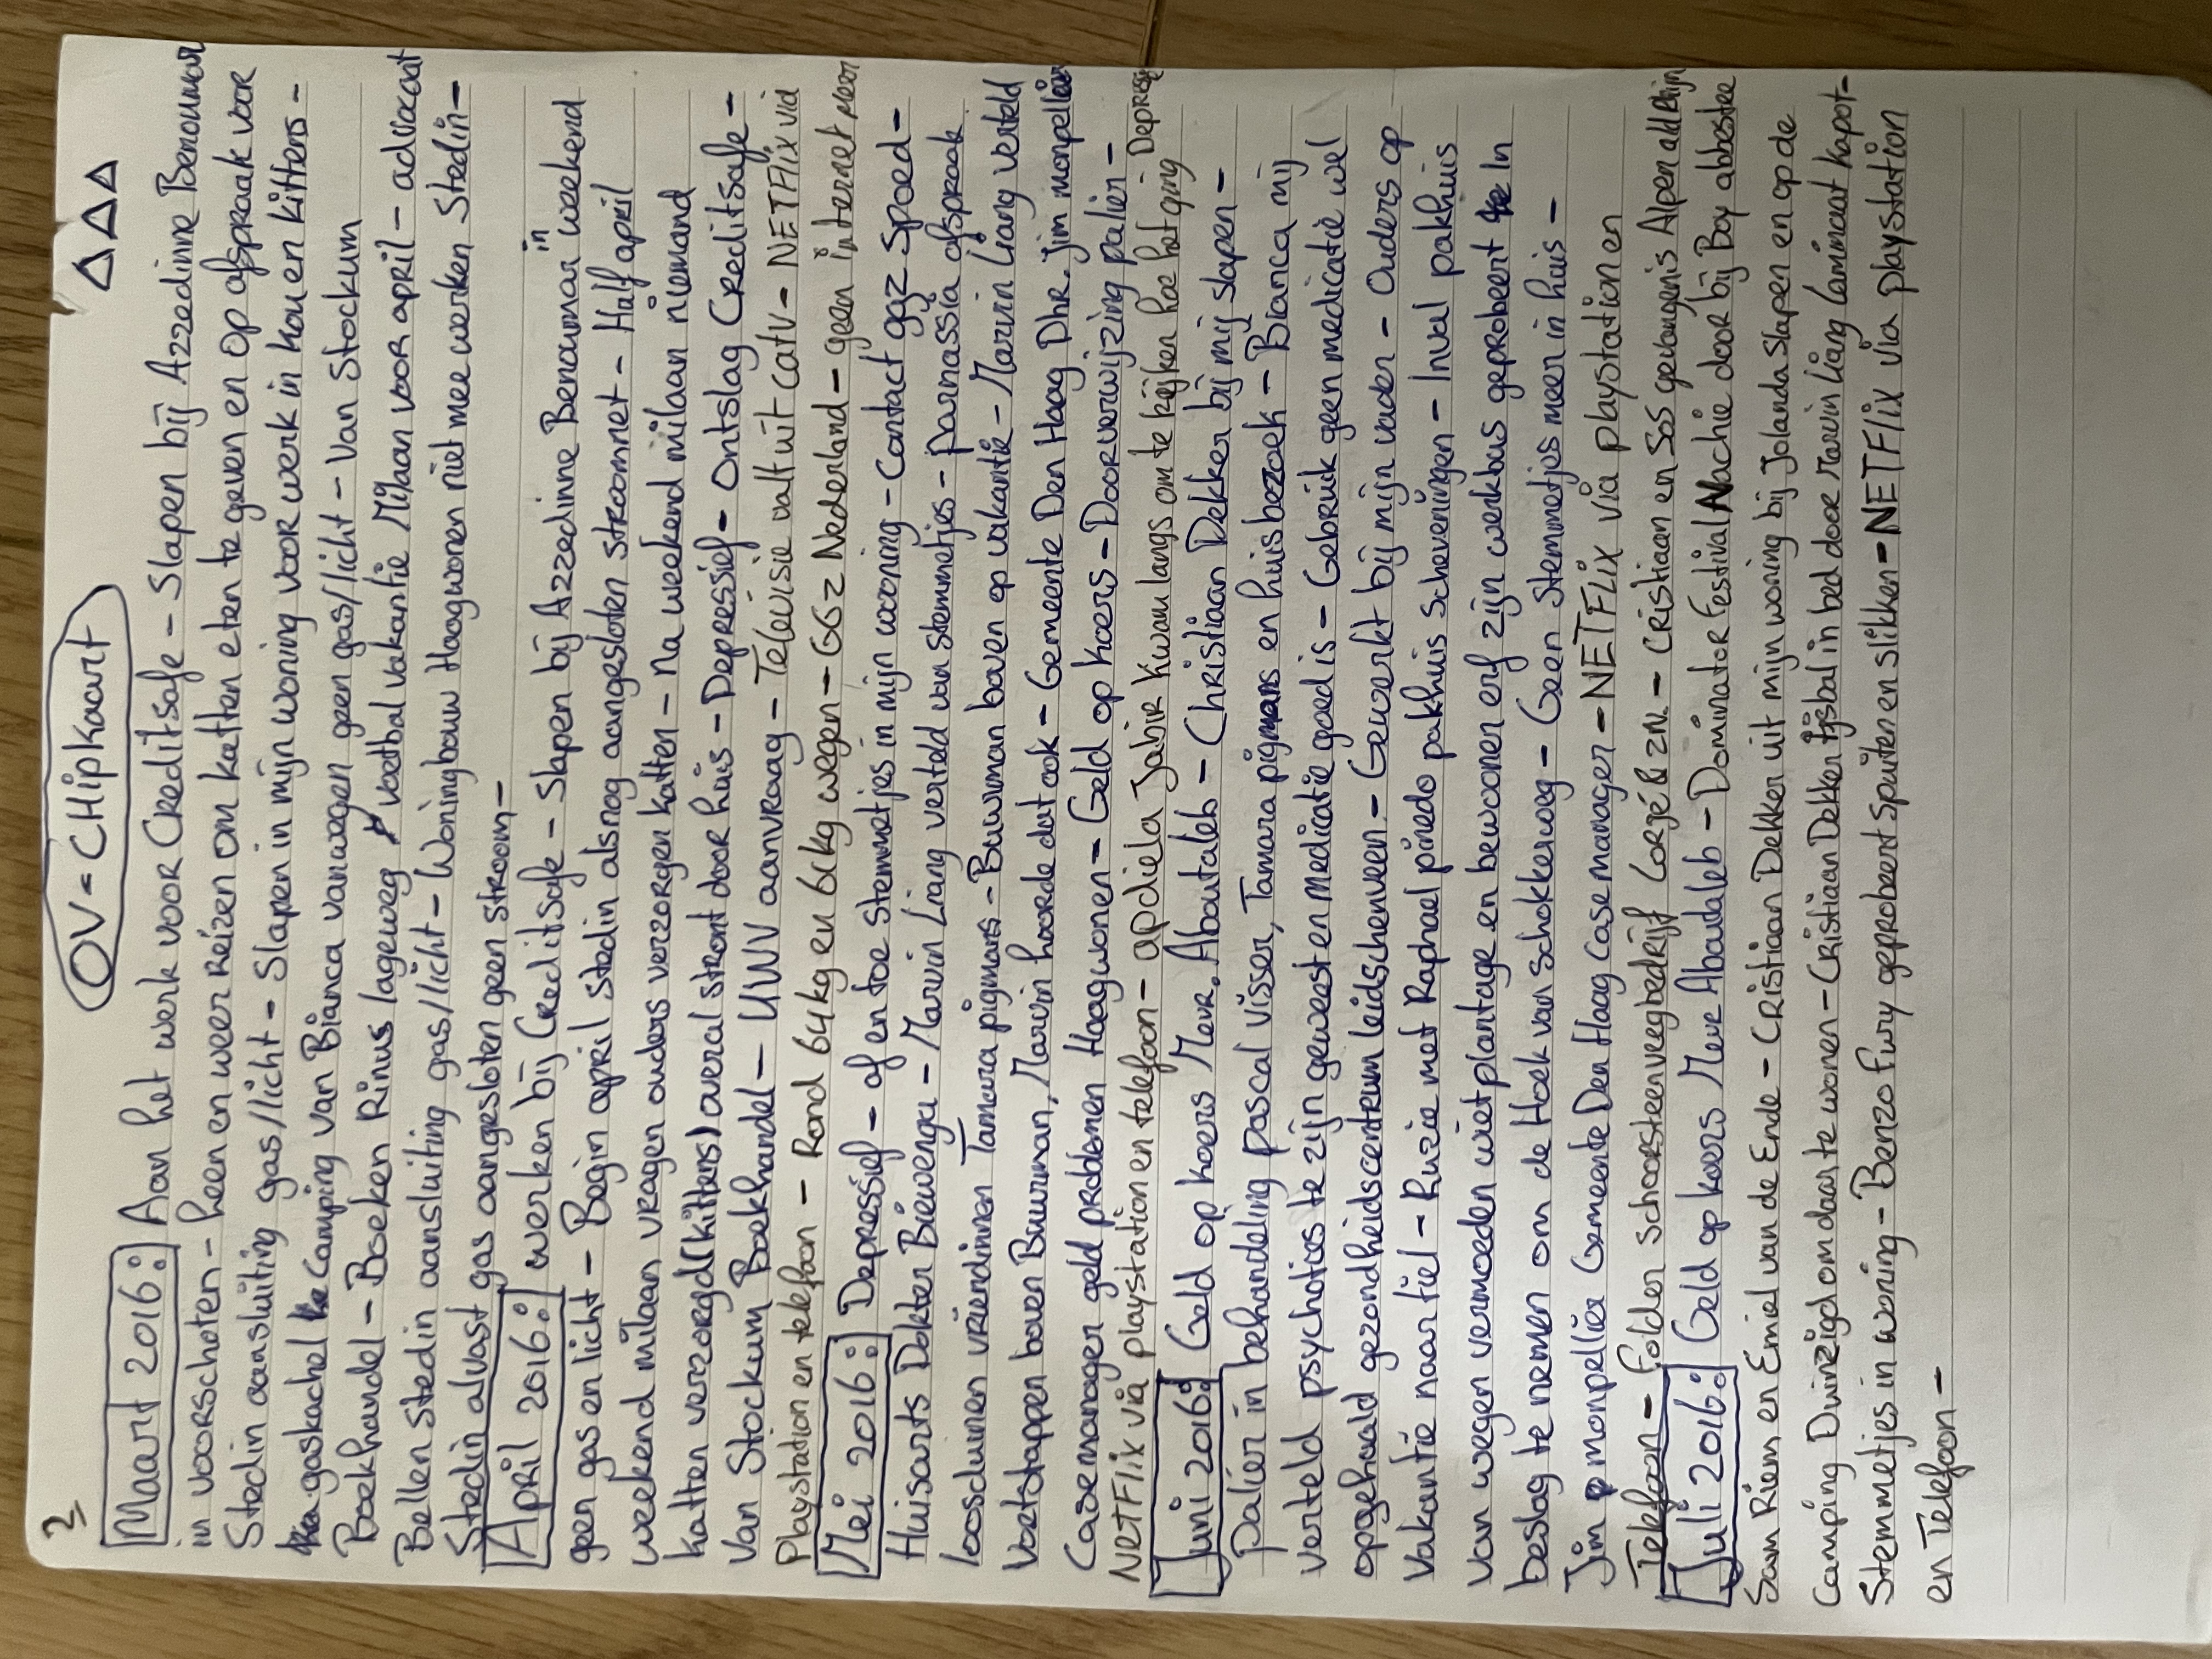 2
OV-CHipkaart
△△△
Maart 2016: Aan het werk voor Creditsafe - Slapen bij Azzedinne Benoumar
in voorschoten - heen en weer reizen om katten eten te geven en op afspraak voor
Stedin aansluiting gas/licht - Slapen in mijn woning voor werk in kou en kittens -
gaskachel Camping van Bianca vanwegen geen gas/licht - Van Stockum
Boekhandel - Boeken Rinus lageweg voetbal vakantie Milaan voor april - advocaat
Bellen Stedin aansluiting gas/licht - Woningbouw Haagwonen niet mee werken Stedin -
Stedin alvast gas aangesloten geen stroom -
April 2016: werken bij Creditsafe - Slapen bij Azzedinne Benaumar in weekend
geen gas en licht - Begin april stedin alsnog aangesloten stroomnet - Half april
weekend milaan vragen ouders verzorgen katten - Na weekend milaan niemand
katten verzorgd (kittens) overal stront door huis - Depressief - Ontslag Creditsafe -
Van Stockum Boekhandel - UWV aanvraag - Televisie valt uit Catv - NETFlix via
Playstation en telefoon - Rond 64kg en 61kg wegen - GGz Nederland - geen internet meer
Mei 2016: Depressief - af en toe stemmetjes in mijn woning - Contact ggz Spoed -
Huisarts Dokter Biewenga - Marvin Liang verteld van stemmetjes - parnassia afspraak
loosduinen vriendinnen Tamara pigmans - Buurman boven op vakantie - Marvin Liang verteld
Voetstappen boven Buurman, Marvin hoorde dat ook - Gemeente Den Haag Dhr. Jim monpellier
Casemanager geld problemen Haagwonen - Geld op koers - Doorverwijzing palier -
NETFlix via playstation en telefoon - apdiela Jabir kwam langs om te kijken hoe het ging Depressief
Juni 2016: Geld op koers Mevr. Aboutaleb - Christiaan Dekker bij mij slapen -
palier in behandeling pascal visser, Tamara pigmans en huisbezoek - Bianca mij
verteld psychotias te zijn geweest en medicatie goed is - Gebruik geen medicatie wel
opgehaald gezondheidscentrum leidschenveen - Gewerkt bij mijn vader - Ouders op
Vakantie naar tiel - Ruzie met Raphael pinedo pakhuis scheveningen - Inval pakhuis
van wegen vermoeden wietplantage en bewooner erf zijn werkbus geprobeert In
beslag te nemen om de Hoek van schokkerweg - Geen Stemmetjes meer in huis -
Jim monpellier Gemeente Den Haag Casemanager - NETFlix via playstation en
Telefoon - Folder schoorsteenveegbedrijf Corzé & ZN. - Cristiaan en SoS gevangenis Alpen ald Rhijn
Juli 2016: Geld op koers Mevr Aboudaleb - Dominator Festival Nachie door bij Boy abbestee
Sam Riem en Emiel van de Ende - Cristiaan Dekker uit mijn woning bij Jolanda Slapen en op de
Camping Duinzigd om daar te wonen - Cristiaan Dekker fijsbal in bed door Marvin Liang laminaat kapot -
Stemmetjes in woning - Benzo Fury geprobeert Spuiten en slikken - NETFlix via playstation
en Telefoon -